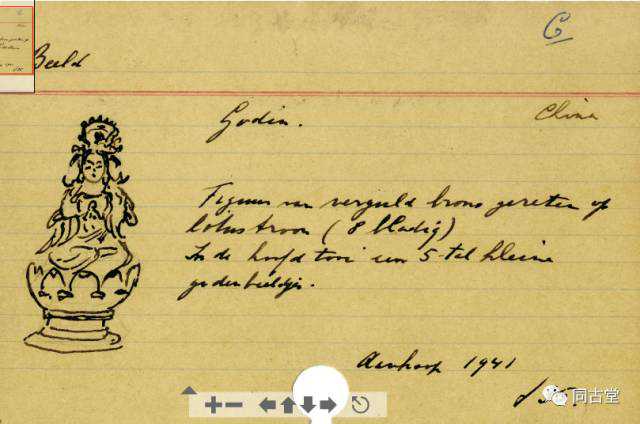 C
Beeld
Godin.
China
Figuur van verguld brons gezeten op
lotustroon (8 bladig)
In de hoofdtooi een 5-tal kleine
godenbeeldjes.
Aankoop 1941
同古堂